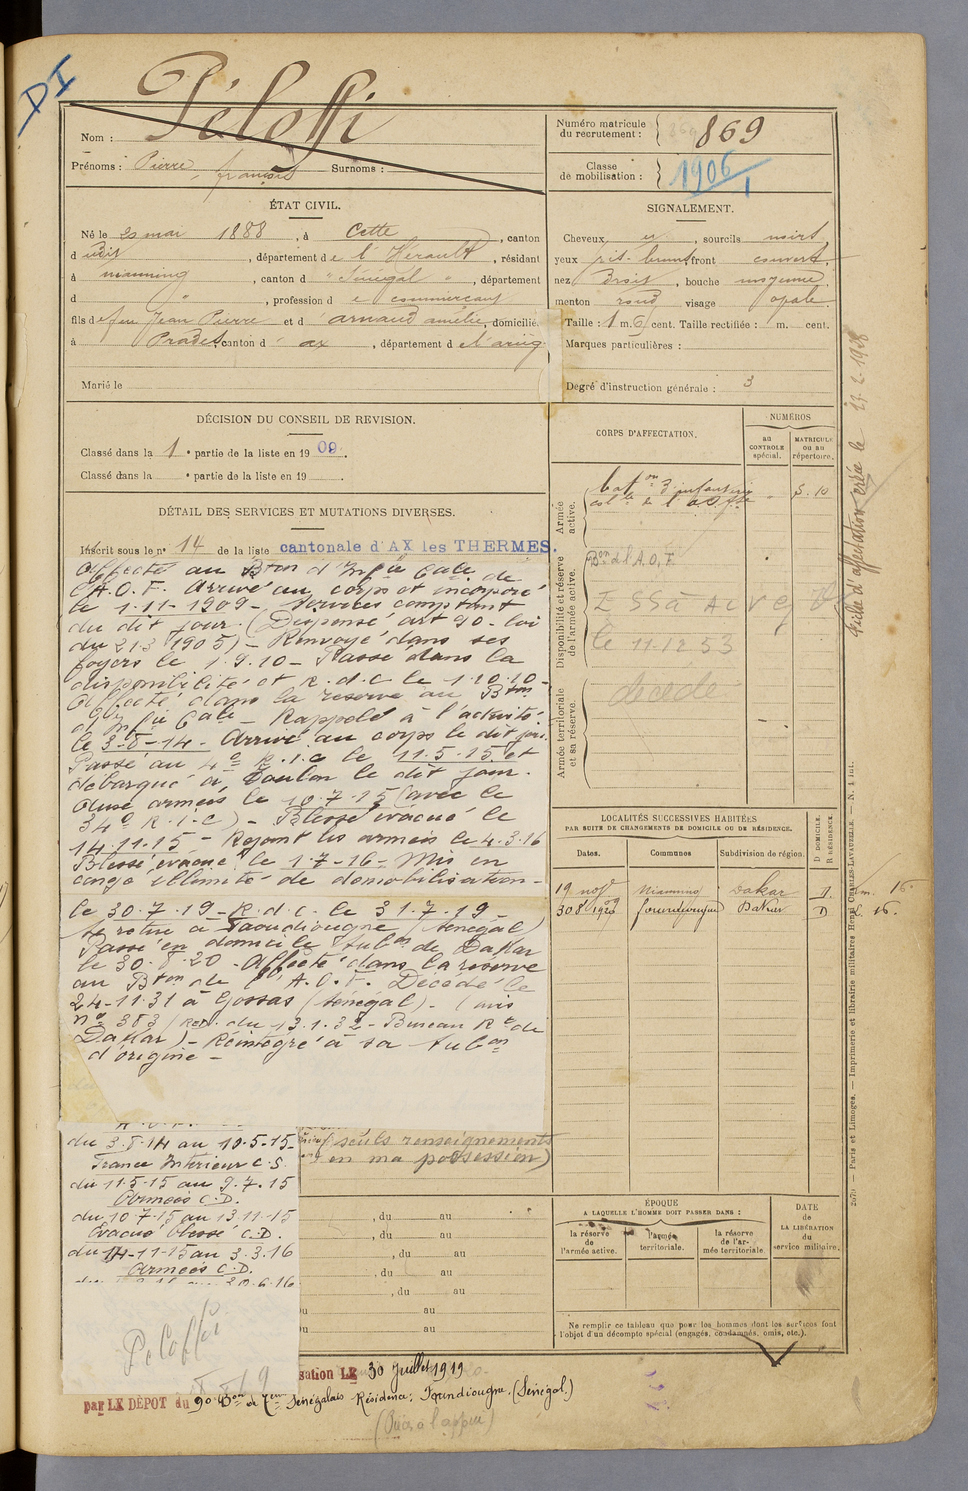 DI
Péloffi
Nom :
Prénoms : Pierre, françois Surnoms :
Numéro matricule
du recrutement : 869
Classe
de mobilisation : 1906/1
ÉTAT CIVIL.
Né le 20 mai 1888, à Cette, canton
d udit, département de l'Hérault, résidant
à , canton d " Sénégal ", département
d ", profession de commerçant
fils de feu Jean Pierre et d'arnaud amélie, domicilié
à Prades, canton d'ax, département de l'arièg
Marié le
SIGNALEMENT.
Cheveux , sourcils noirs
yeux front couvert,
nez Droit, bouche moyenne,
menton rond visage ovale.
Taille : 1 m. 6 cent. Taille rectifiée : m. cent.
Marques particulières :
Degré d'instruction générale : 3
DÉCISION DU CONSEIL DE REVISION.
Classé dans la 1e partie de la liste en 1909.
Classé dans la e partie de la liste en 19 .
DÉTAIL DES SERVICES ET MUTATIONS DIVERSES.
Inscrit sous le n° 14 de la liste cantonale d'AX les THERMES.
Affecté au Bton d'Infie Cale de
l'A.O.F. Arrivé au corps et incorporé
le 1-11-1909 - Services comptant
du dit jour. (Dispensé art 90 - loi
du 21.3.1905) - Renvoyé dans ses
foyers le 1.9.10 - Passé dans la
disponibilité et R.d.c. le 1.10.10 -
Affecté dans la réserve au Bton
d'Infie Cale - Rappelé à l'activité
le 3-8-14 - Arrivé au corps le dit jour.
Passé au 4e R.I.C le 11.5.15 et
débarqué à Toulon le dit jour.
Aux armées le 10.7.15 (avec le
34e R.I.C) - Blessé évacué le
14.11.15 - Rejoint les armées le 4.3.16
Blessé évacué le 1-7-16 - Mis en
congé illimité de démobilisation -
le 30.7.19 - R.d.c. le 31.7.19 -
Se retire à Faoudiougne (Sénégal)
Passé en domicile Subon de Dakar
le 30.8.20 - Affecté dans la réserve
au Bton de l'A.O.F. Décédé le
24-11-31 à Gossas (Sénégal) - (avis
n° 383 du 13.1.32 - Bureau Rt de
Dakar) - Réintégré à sa Subon
d'origine -
du 3.8.14 au 10.5.15 -
France Intérieur C.S.
du 11-5-15 au 9.7.15
Armées C.D.
du 10.7.15 au 13.11.15
Evacué blessé C.D.
du 14-11-15 au 3.3.16
Armées C.D.
20.6.16
Péloffi
(seuls renseignements
en ma possession)
, du au
, du au
, du au
, du au
, du au
au
au
sation LE 30 Juillet 1919
par LE DÉPOT du 90e Bon de Tirs Sénégalais Résidence : Foundiougne. (Sénégal.)
CORPS D'AFFECTATION.
NUMÉROS
au
CONTROLE
spécial.
MATRICULE
OU AU
répertoire.
Armée
active.
baton d'infanterie
colle de l'a.o.f.
S. 10
Disponibilité et réserve
de l'armée active.
Bon d l'A.O.F.
le 11.12 53
Armée territoriale
et sa réserve.
décédé
LOCALITÉS SUCCESSIVES HABITÉES
PAR SUITE DE CHANGEMENTS DE DOMICILE OU DE RÉSIDENCE.
Dates. Communes Subdivision de région. D DOMICILE. R RÉSIDENCE.
19 Dakar D. 16.
30 8 1920 foundiougne Dakar D 16.
ÉPOQUE
A LAQUELLE L'HOMME DOIT PASSER DANS :
la réserve
de
l'armée active.
l'armée
territoriale.
la réserve
de l'ar-
mée territoriale
DATE
de
LA LIBÉRATION
du
service militaire.
Ne remplir ce tableau que pour les hommes dont les services font
l'objet d'un décompte spécial (engagés, condamnés, omis, etc.).
Fiche d'affectation créée le 23.2.1928
Paris et Limoges. — Imprimerie et librairie militaires Henri CHARLES-LAVAUZELLE.